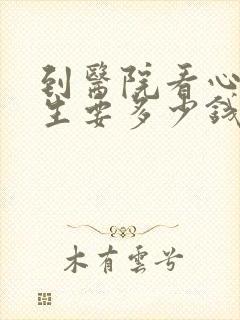 到醫院看心
生要多少錢
木有雲兮